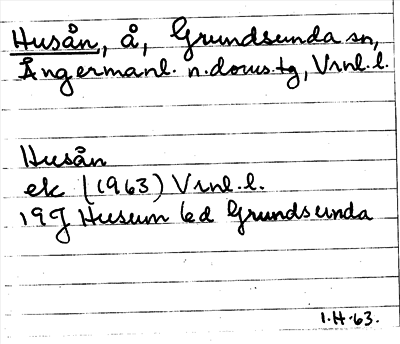 Husån, å, Grundsunda sn,
Ångermanl. n. doms.tg, Vrnl. l.
Husån
ek (1963) Vrnl. l.
19J Husum bd Grundsunda
1.H.63.